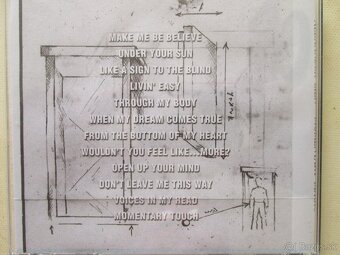 MAKE ME BE BELIEVE
UNDER YOUR SUN
LIKE A SIGN TO THE BLIND
LIVIN' EASY
THROUGH MY BODY
WHEN MY DREAM COMES TRUE
FROM THE BOTTOM OF MY HEART
WOULDN'T YOU FEEL LIKE...MORE?
OPEN UP YOUR MIND
DON'T LEAVE ME THIS WAY
VOICES IN MY HEAD
MOMENTARY TOUCH
Bazar.sk